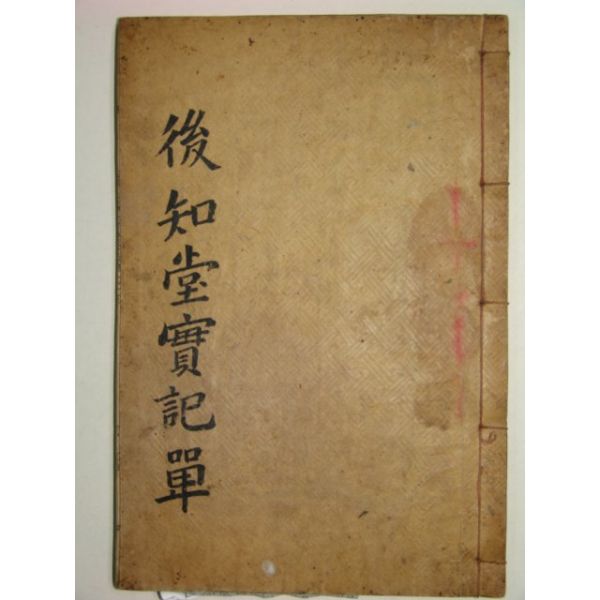 後知堂實記單